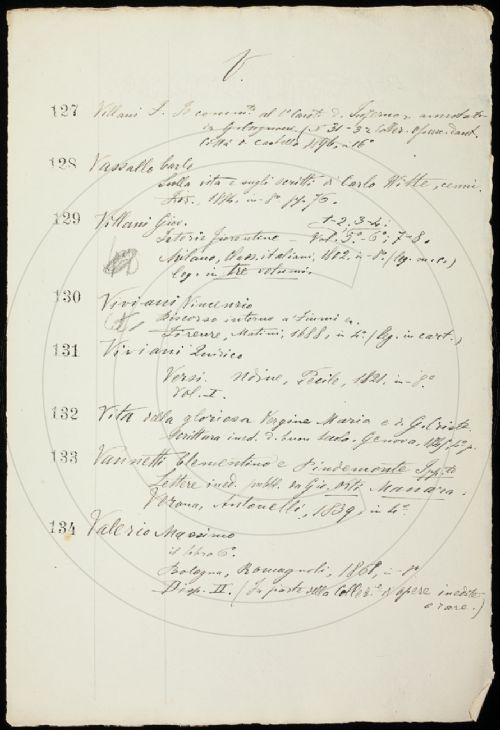 V.
127 Villani F. Il commto al 1o Canto d. Inferno, annotato
da G. Cugnoni. (No 31-32 Collez. Opusc. dant.
Città di Castello 1896, in 16o
128 Vassallo Carlo
Sulla vita e sugli scritti di Carlo Witte, cenni.
Fir., 1884. in-8o pp. 76.
129 Villani Giov.
1-2, 3-4;
Istorie fiorentine - Vol. 5o-6o; 7-8.
Milano, Class. italiani, 1802. in-8o (leg. in c.)
leg. in tre volumi.
130 Viviani Vincenzio
Discorso intorno a' fiumi
Firenze, Matini, 1688, in 4. (leg. in cart.)
131 Viviani Quirico
Versi. Udine, Pecile, 1821. in-8o
Vol. I.
132 Vita della gloriosa Vergine Maria e di G. Cristo
Scrittura ined. d. buon secolo. Genova
133 Vannetti Clementino e Pindemonte Ipp.to
Lettere ined. pubb. da Gio. Orti Manara.
Verona, Antonelli, 1839, in 4o.
134 Valerio Massimo
il libro 6o.
Bologna, Romagnoli, in 8o
Disp. II. (Fa parte della Collez.e d'opere inedite
o rare.)